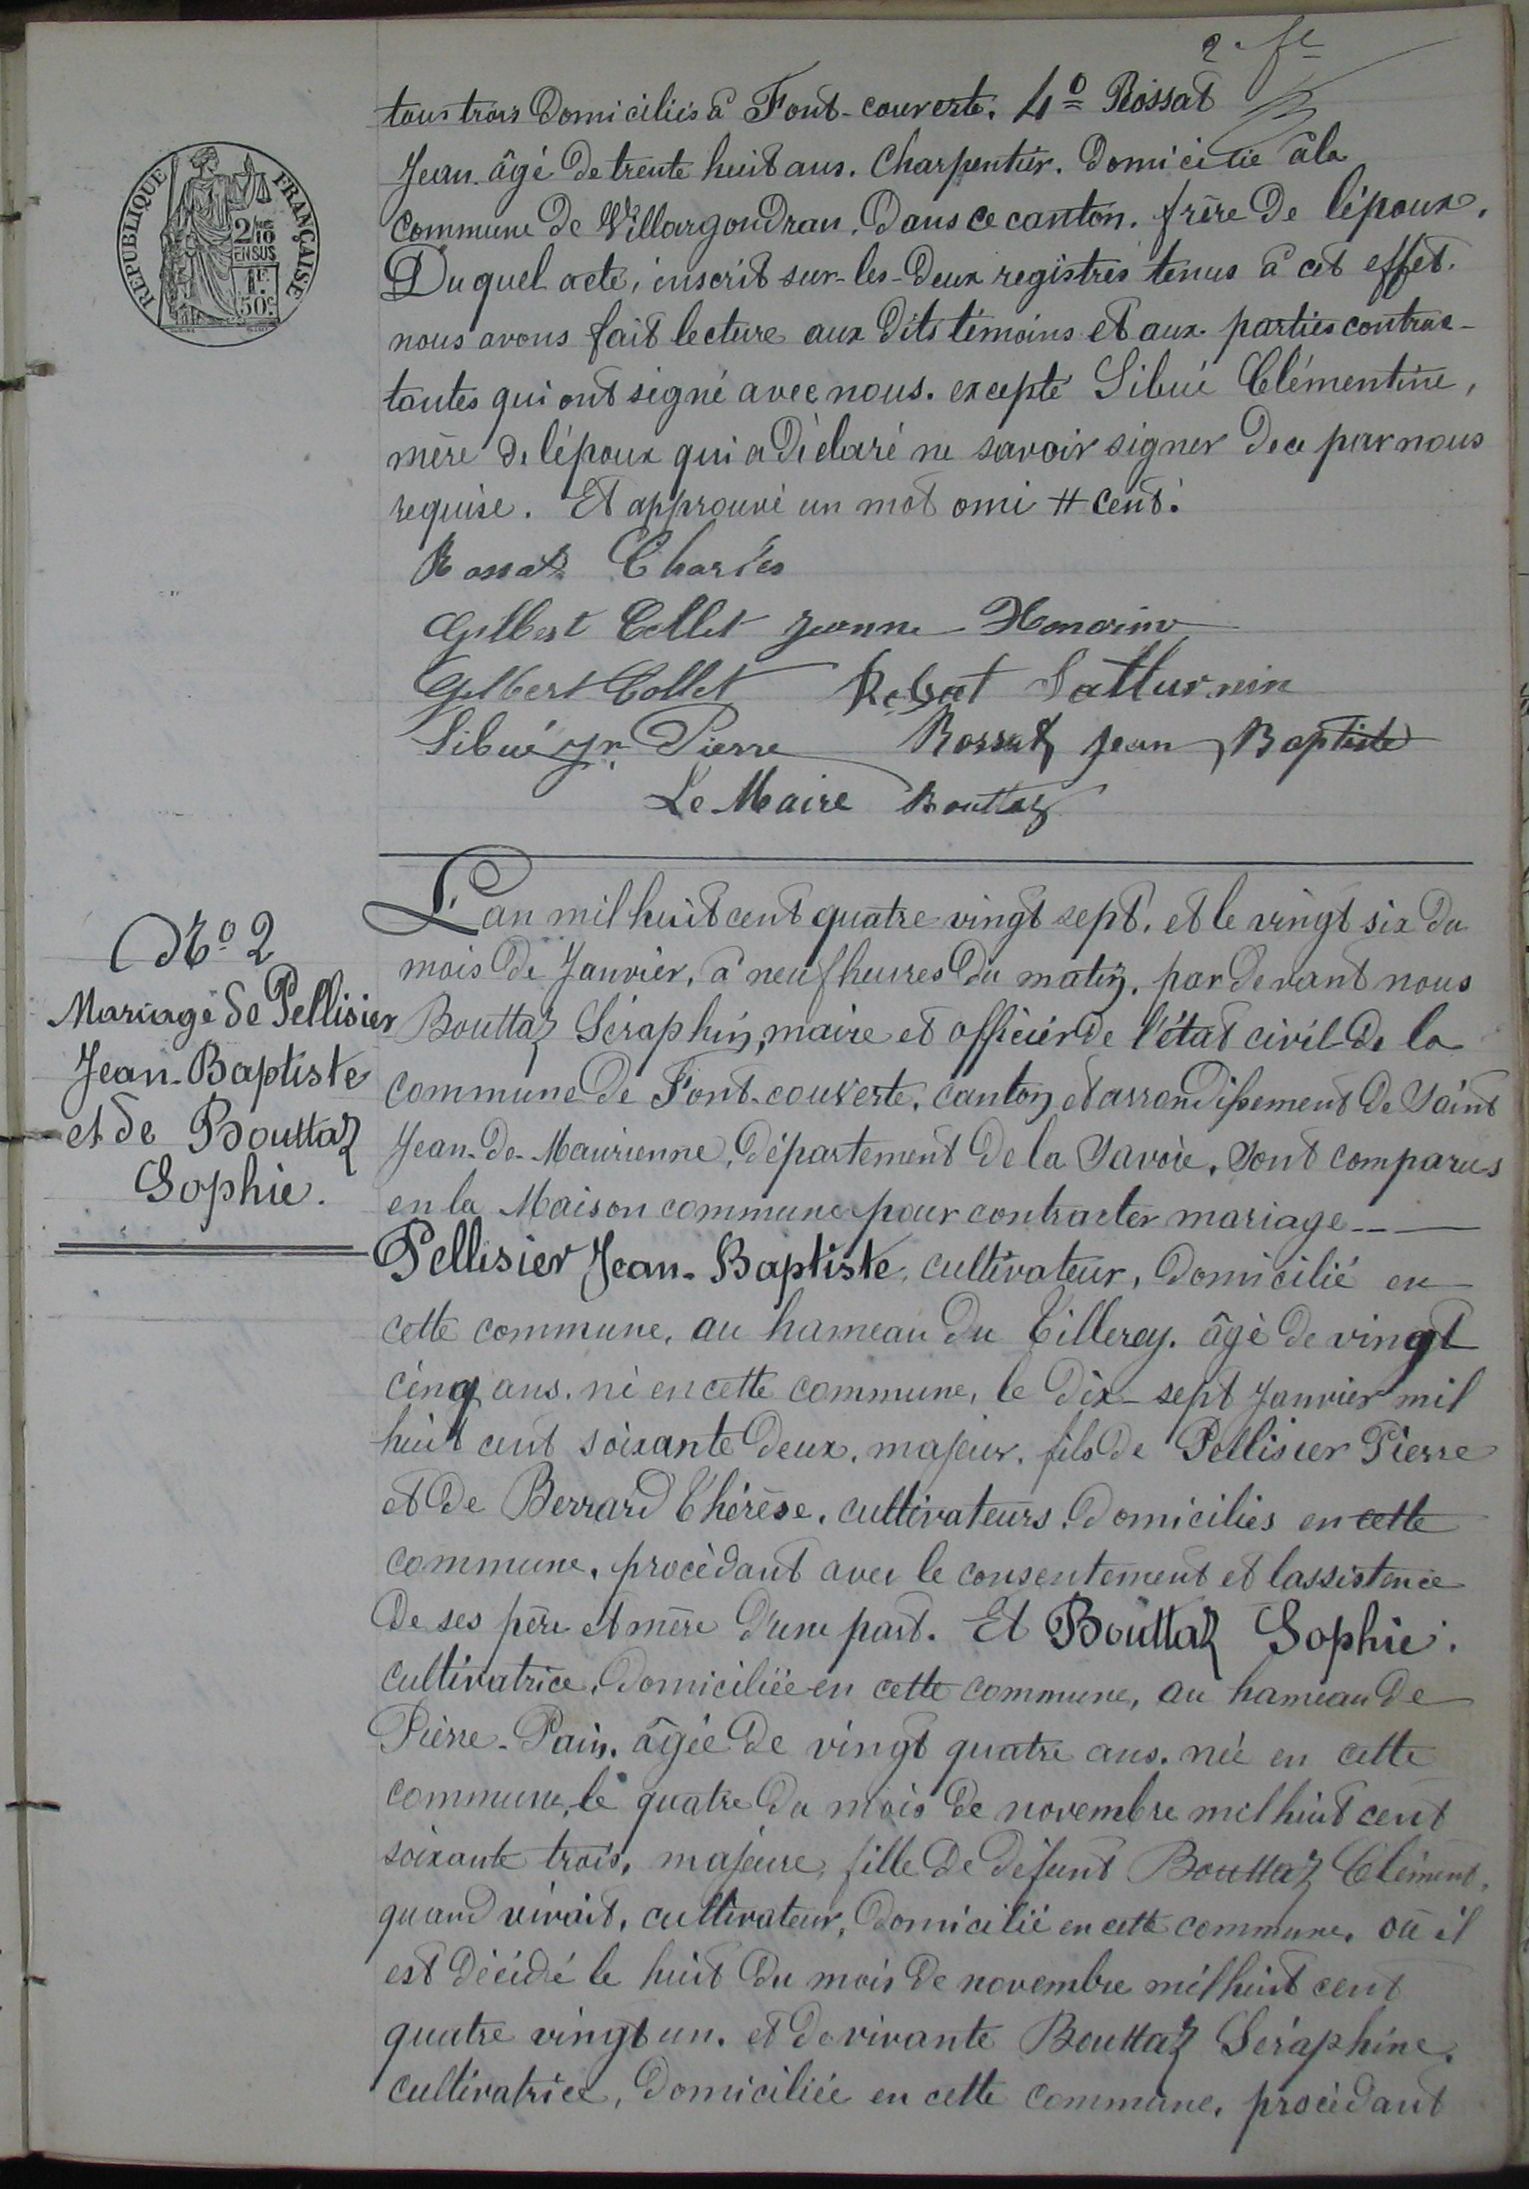 2. fe
tous trois domiciliés à Font-couverte. 4º Rossat
Jean. âgé de trente huit ans. Charpentier. domicilié à la
commune de Villargondran, dans ce canton. frère de l'époux.
Duquel acte, inscrit sur les deux registres tenus à cet effet.
nous avons fait lecture aux dits témoins et aux parties contrac-
tantes qui ont signé avec nous. excepté Sibué Clémentine,
mère de l'époux qui a déclaré ne savoir signer de ce par nous
requise. Et approuvé un mot omi # cent.
Rossat Charles
Gilbert Collet Jeanne Honorine
Gilbert Collet Rossat Satturnin
Sibué Jn Pierre Rossat Jean Baptiste
Le Maire Bouttaz
REPUBLIQUE FRANÇAISE
2/10
EN SUS
1F.
50c.
Nº 2
Mariage de Pellisier
Jean-Baptiste
et de Bouttaz
Sophie.
L'an mil huit cent quatre vingt sept, et le vingt six du
mois de Janvier, à neuf heures du matin, par devant nous
Bouttaz Séraphin, maire et officier de l'état civil de la
commune de Font-couverte, canton et arrondissement de Saint
Jean-de-Maurienne, département de la Savoie, sont comparus
en la Maison commune pour contracter mariage
Pellisier Jean-Baptiste, cultivateur, domicilié en
cette commune, au hameau du Tilleray. âgé de vingt
cinq ans. né en cette commune, le dix-sept Janvier mil
huit cent soixante deux, majeur, fils de Pellisier Pierre
et de Berrard Thérèse, cultivateurs, domiciliés en cette
commune, procédant avec le consentement et lassistence
de ses père et mère d'une part. Et Bouttaz Sophie.
cultivatrice, domiciliée en cette commune, au hameau de
Pierre-Pain, âgée de vingt quatre ans. née en cette
commune, le quatre du mois de novembre mil huit cent
soixante trois, majeure, fille de défunt Bouttaz Clément,
quand vivait, cultivateur, domicilié en cette commune, où il
est décédé le huit du mois de novembre mil huit cent
quatre vingt un. et de vivante Bouttaz Séraphine.
cultivatrice, domiciliée en cette commune, procédant